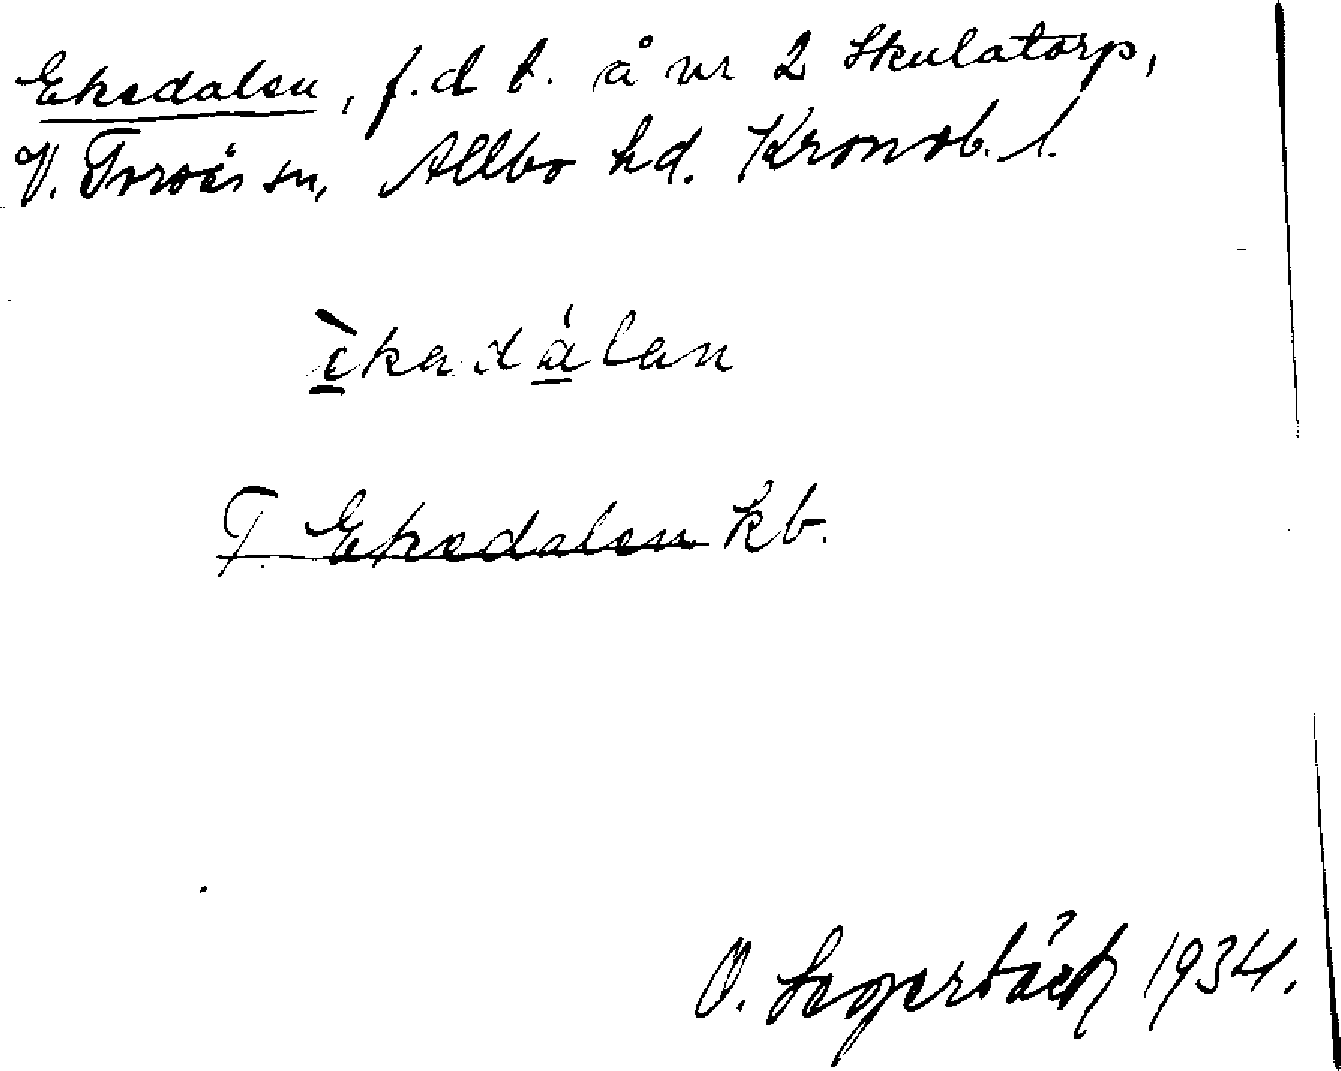 Ekedalen, f.d t. å nr 2 Skulatorp,
V. Torsås sn, Allbo hd. Kronob. l.
èkadálan
T. Ekedalen kb.
O. Segerbäck 1934.